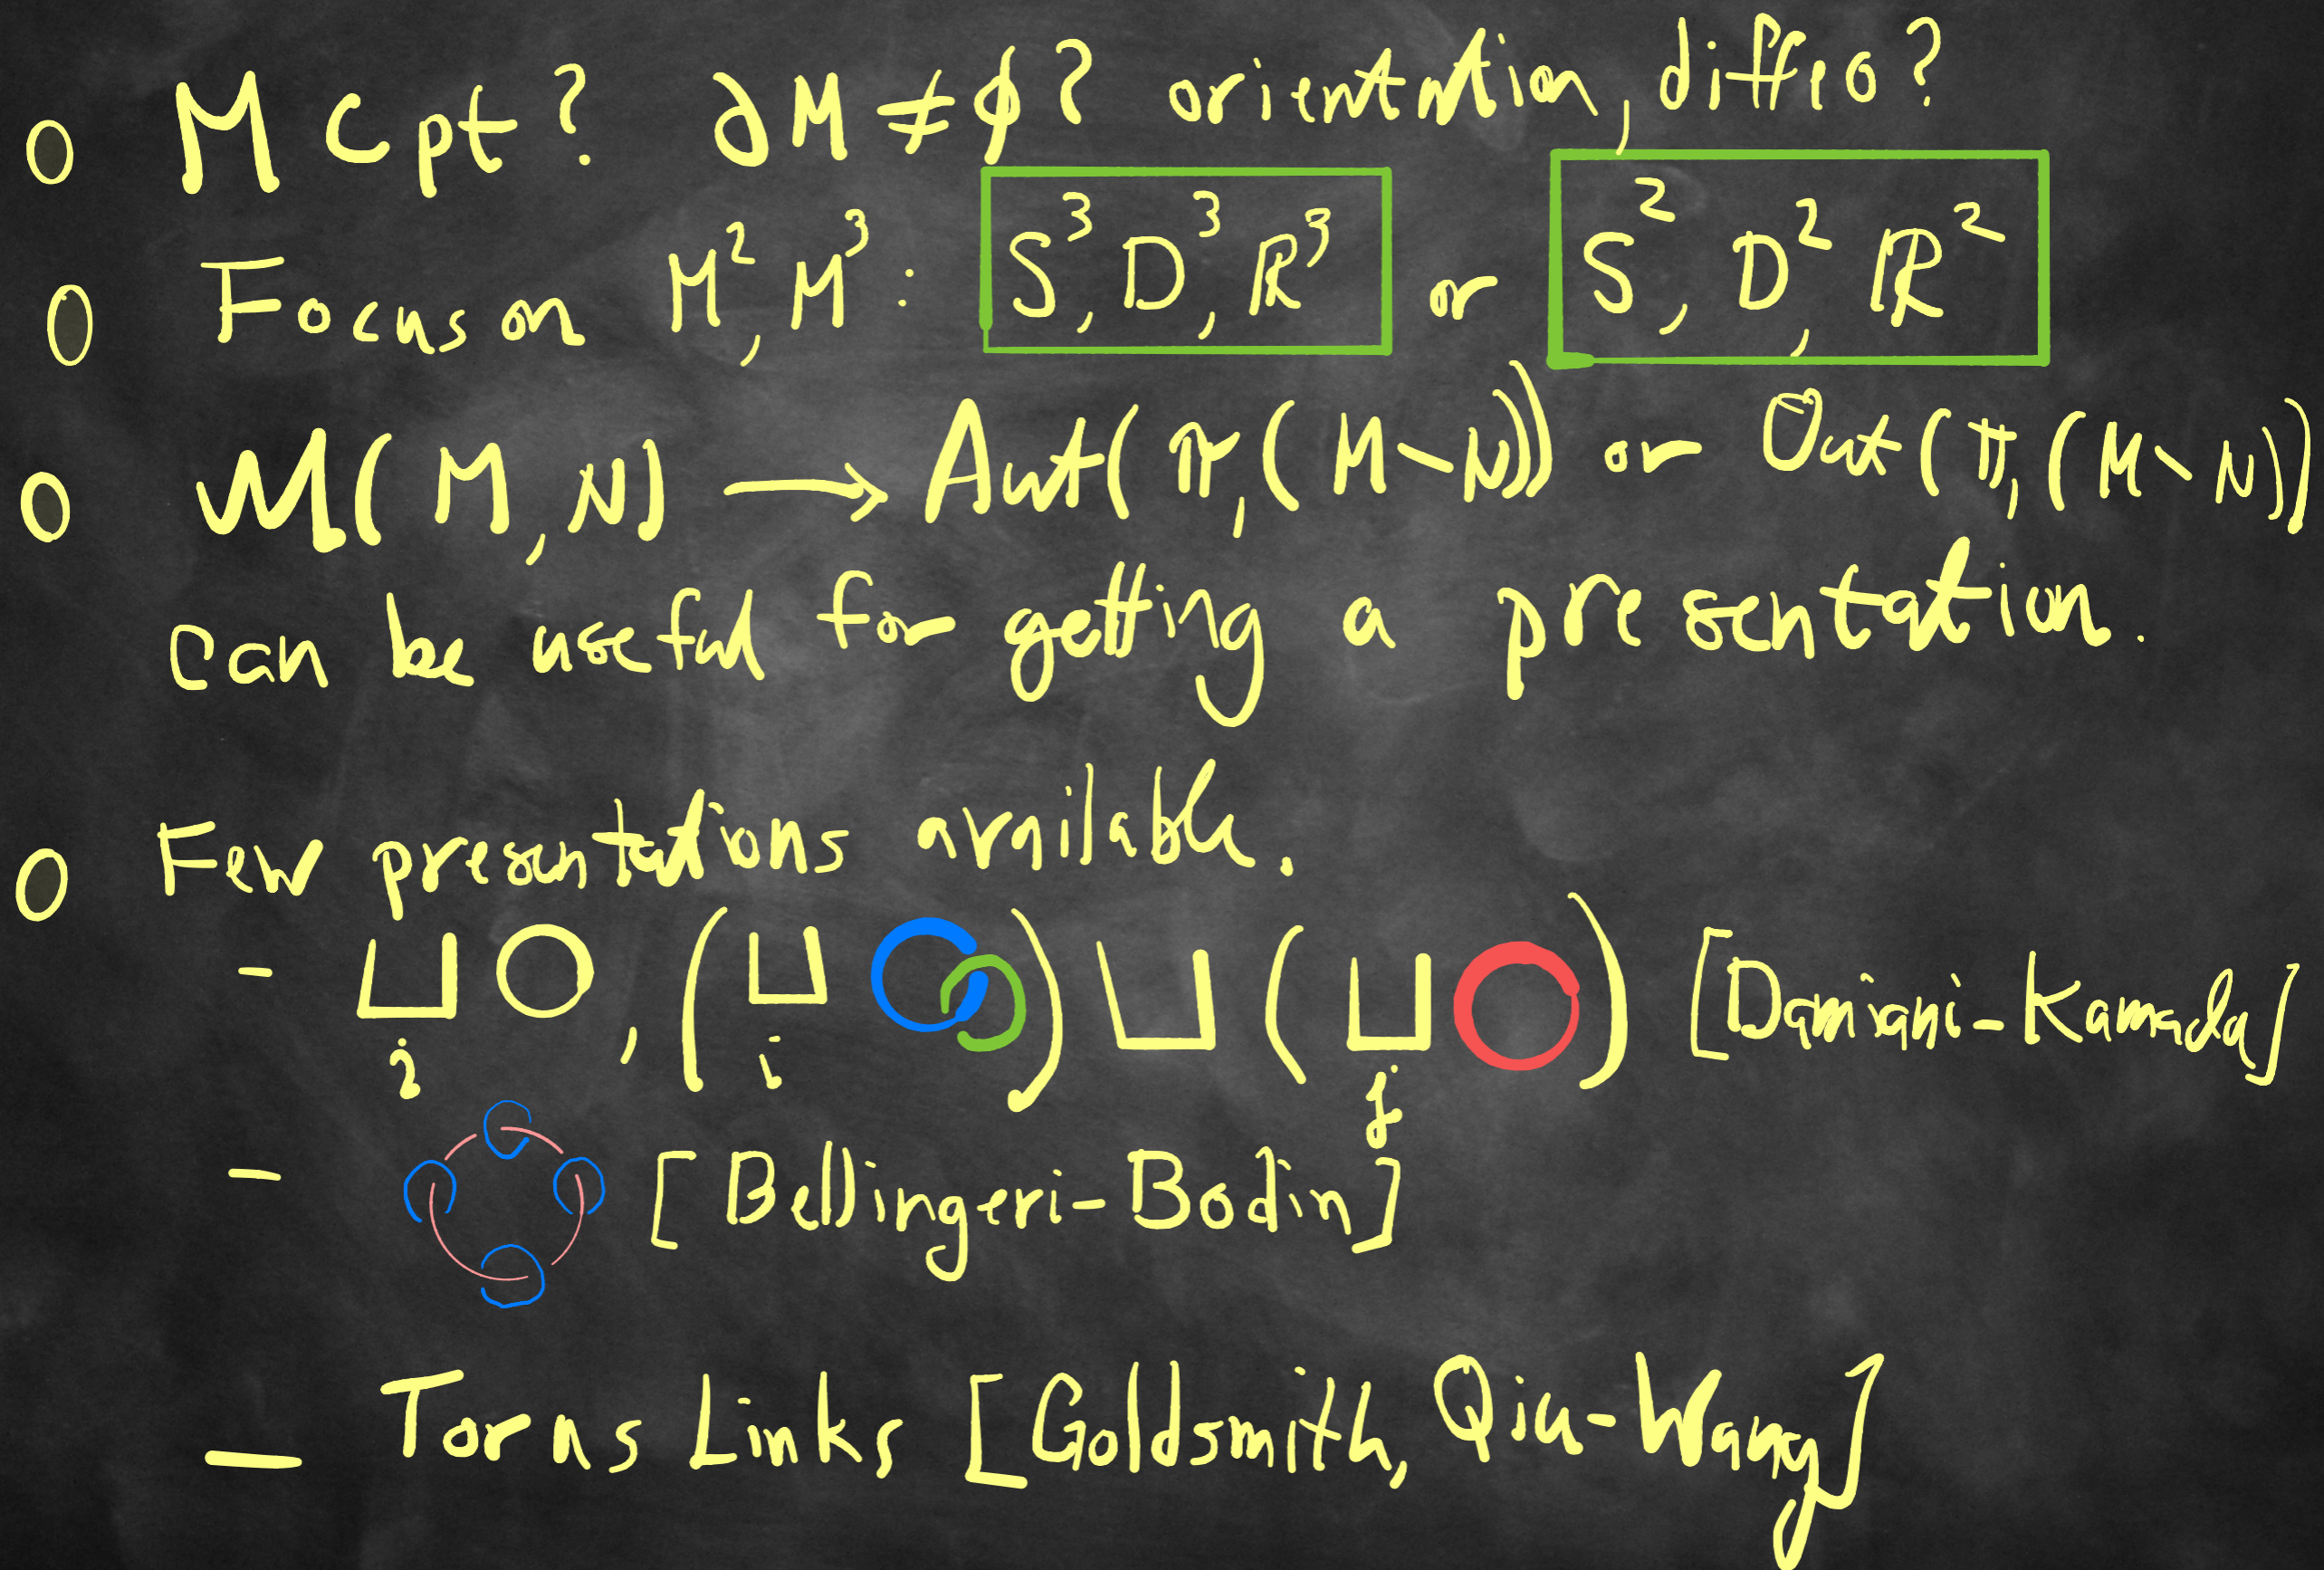 ○ M cpt? ∂M ≠ ϕ? orientation, diffeo?
○ Focus on M², M³ : S³, D³, ℝ³ or S², D², ℝ²
○ M(M, N) → Aut(π₁(M∖N)) or Out(π₁(M∖N))
can be useful for getting a presentation.
○ Few presentations available.
- ⊔ᵢ ○, (⊔ᵢ ) ⊔ (⊔ⱼ ○) [Damiani-Kamada]
- [Bellingeri-Bodin]
- Torus Links [Goldsmith, Qiu-Wang]